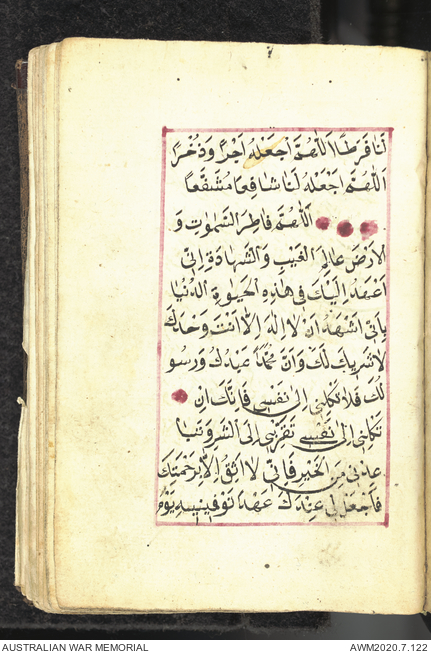 لَنَا فَرَطًا اَللّٰهُمَّ اجْعَلْهُ اَجْرًا وَذُخْرًا
اَللّٰهُمَّ اجْعَلْهُ لَنَا شَافِعًا مُشَفَّعًا
اَللّٰهُمَّ فَاطِرَ السَّمٰوَاتِ وَ
الْاَرْضَ عَالِمَ الْغَيْبِ وَالشَّهَادَةِ اِنّى
اَعْهَدُ اِلَيْكَ فِى هٰذِهِ الْحَيٰوةِ الدُّنْيَا
بِاَنّى اَشْهَدُ اَنْ لَا اِلٰهَ اِلَّا اَنْتَ وَحْدَكَ
لَا شَرِيكَ لَكَ وَاَنَّ مُحَمَّدًا عَبْدُكَ وَرَسُو
لُكَ فَلَا تَكِلْنِى اِلٰى نَفْسِى فَاِنَّكَ اِنْ
تَكِلْنِى اِلٰى نَفْسِى تُقَرِّبْنِى اِلَى الشَّرِّ وَتُبَا
عِدْنِى مِنَ الْخَيْرِ فَاِنّى لَا اَثِقُ اِلَّا بِرَحْمَتِكَ
فَاجْعَلْ لِى عِنْدَكَ عَهْدًا تُوَفِّينِيهِ يَوْمَ
AUSTRALIAN WAR MEMORIAL
AWM2020.7.122